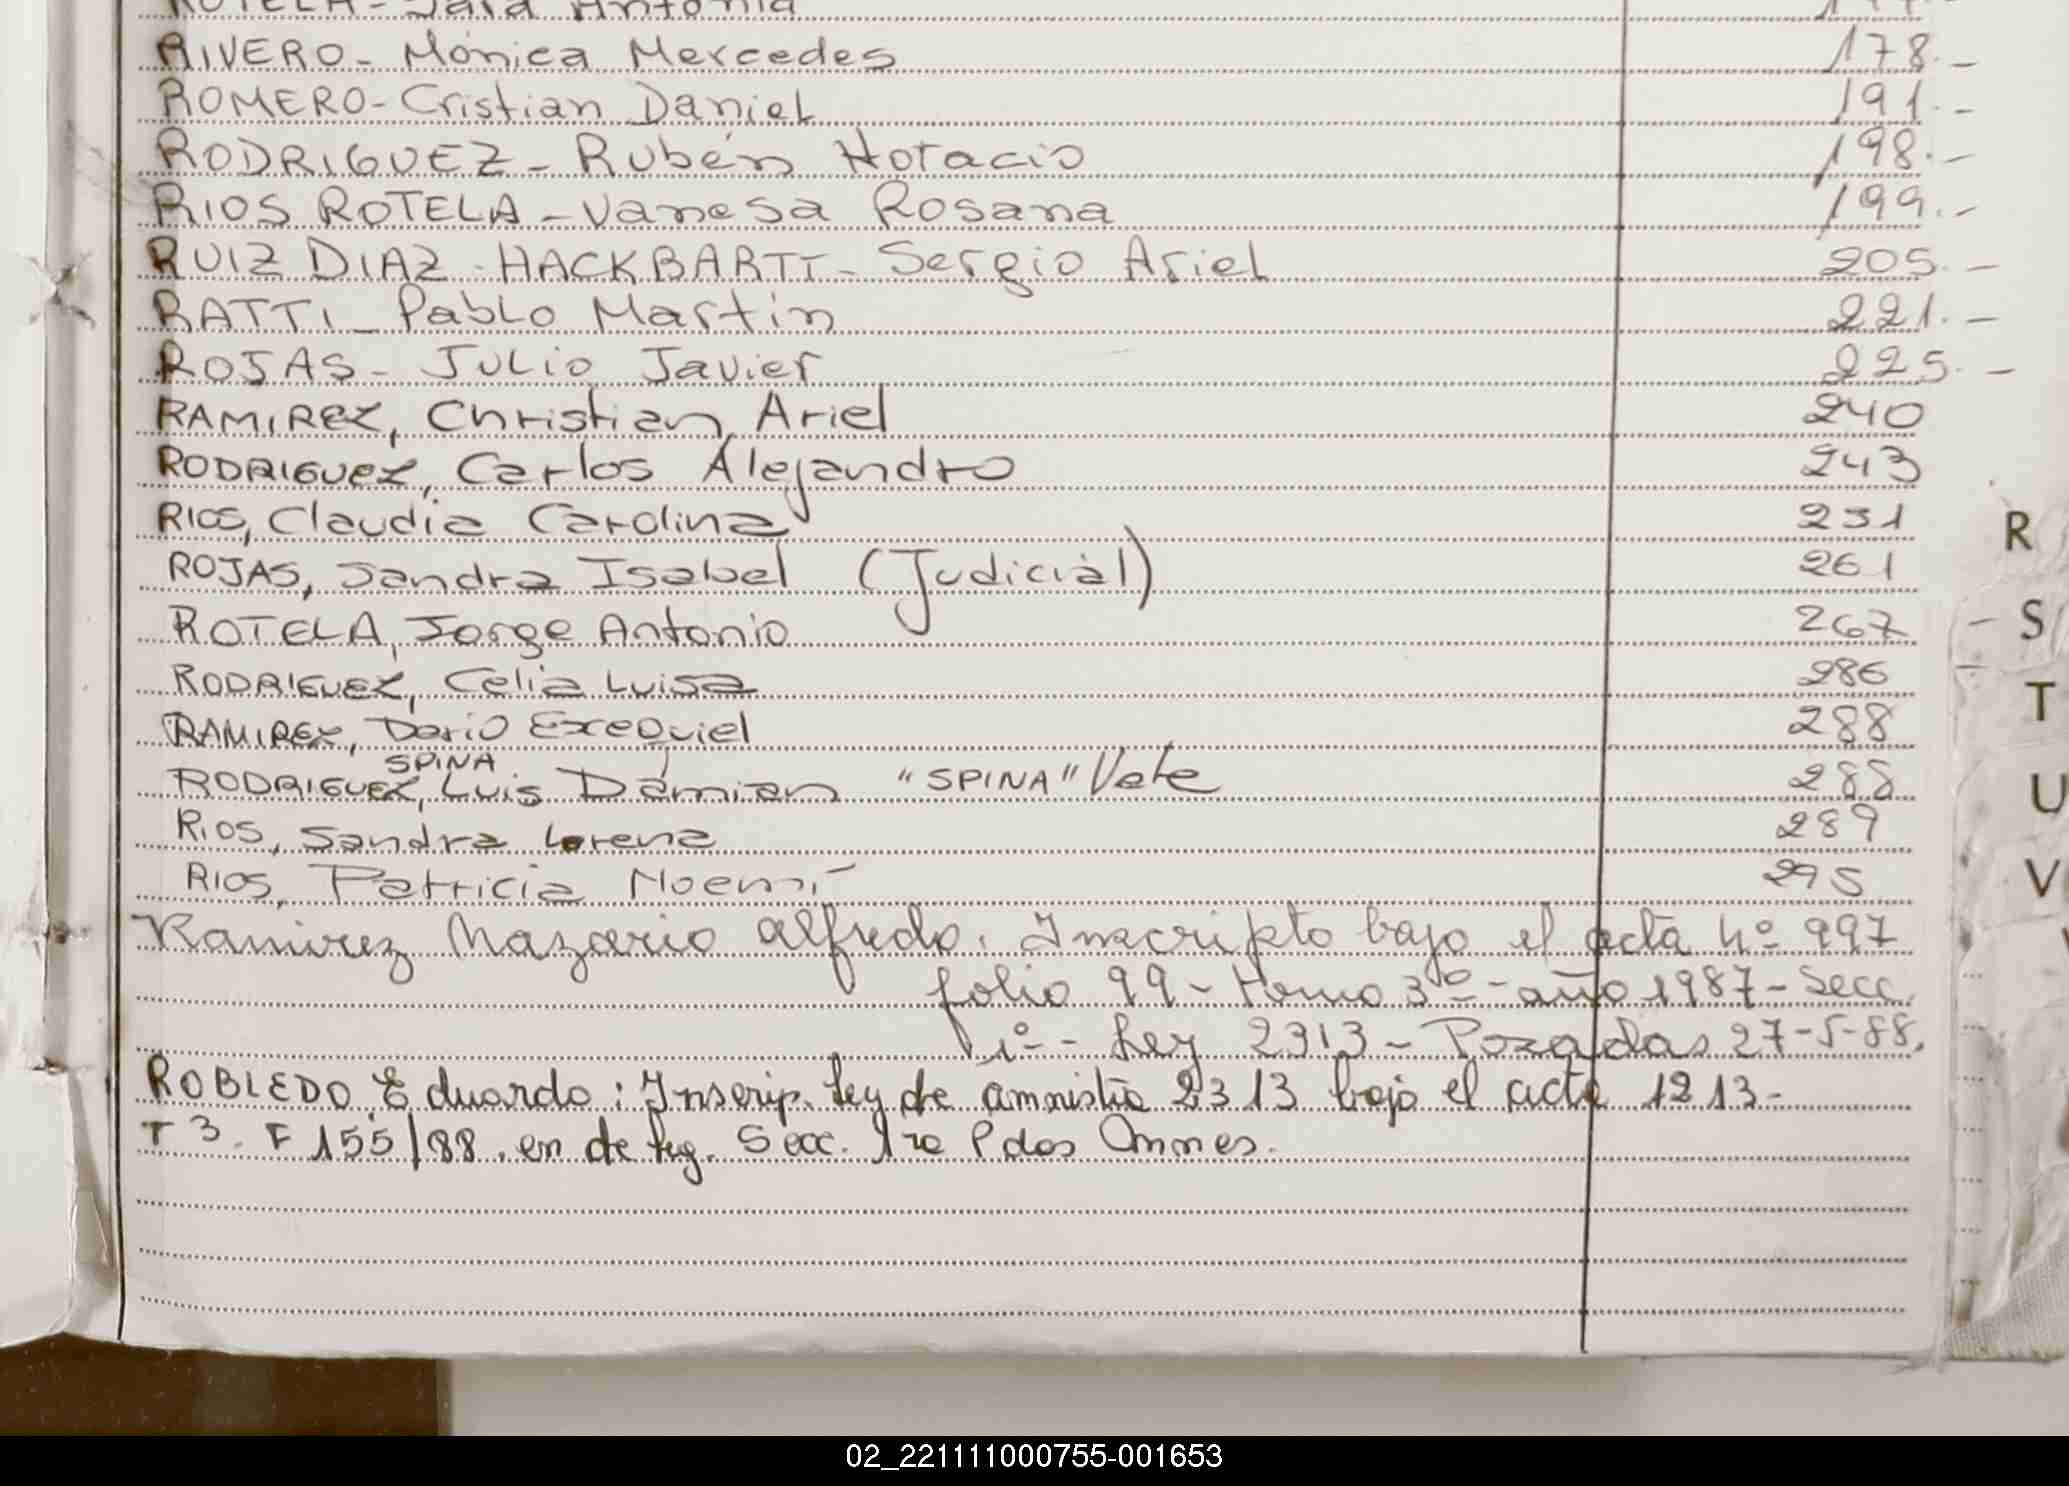 ROTELA - Sara Antonia
RIVERO - Mónica Mercedes 178.-
ROMERO - Cristian Daniel 191.-
RODRIGUEZ - Rubén Horacio 198.-
RIOS ROTELA - Vanesa Rosana 199.-
RUIZ DIAZ - HACKBARTT - Sergio Ariel 205.-
RATTI - Pablo Martín 221.-
ROJAS - Julio Javier 225.-
RAMIREZ, Christian Ariel 240
RODRIGUEZ, Carlos Alejandro 243
RIOS, Claudia Carolina 251
ROJAS, Sandra Isabel (Judicial) 261
ROTELA, Jorge Antonio 267
RODRIGUEZ, Celia Luisa 286
RAMIREZ, Dario Exequiel 288
SPINA
RODRIGUEZ, Luis Damian "SPINA" Vale 288
RIOS, Sandra Lorena 289
RIOS, Patricia Noemí 295
Ramirez Nazario Alfredo. Inscripto bajo el acta Nº 997
folio 99 - tomo 3º - año 1987 - Secc.
1º - Ley 2313 - Posadas 27-5-88.
ROBLEDO Eduardo: Inscrip. ley de amnistia 2313 bajo el acta 1213-
T 3. F 155/88. en de leg. Secc. 1ra Pdas Mnnes.
R
S
T
U
V
02_221111000755-001653